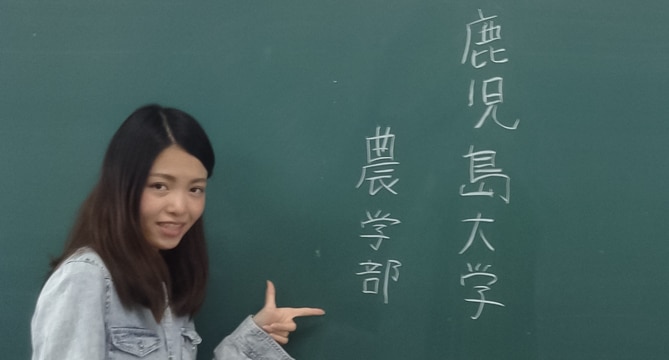 鹿児島大学
農学部